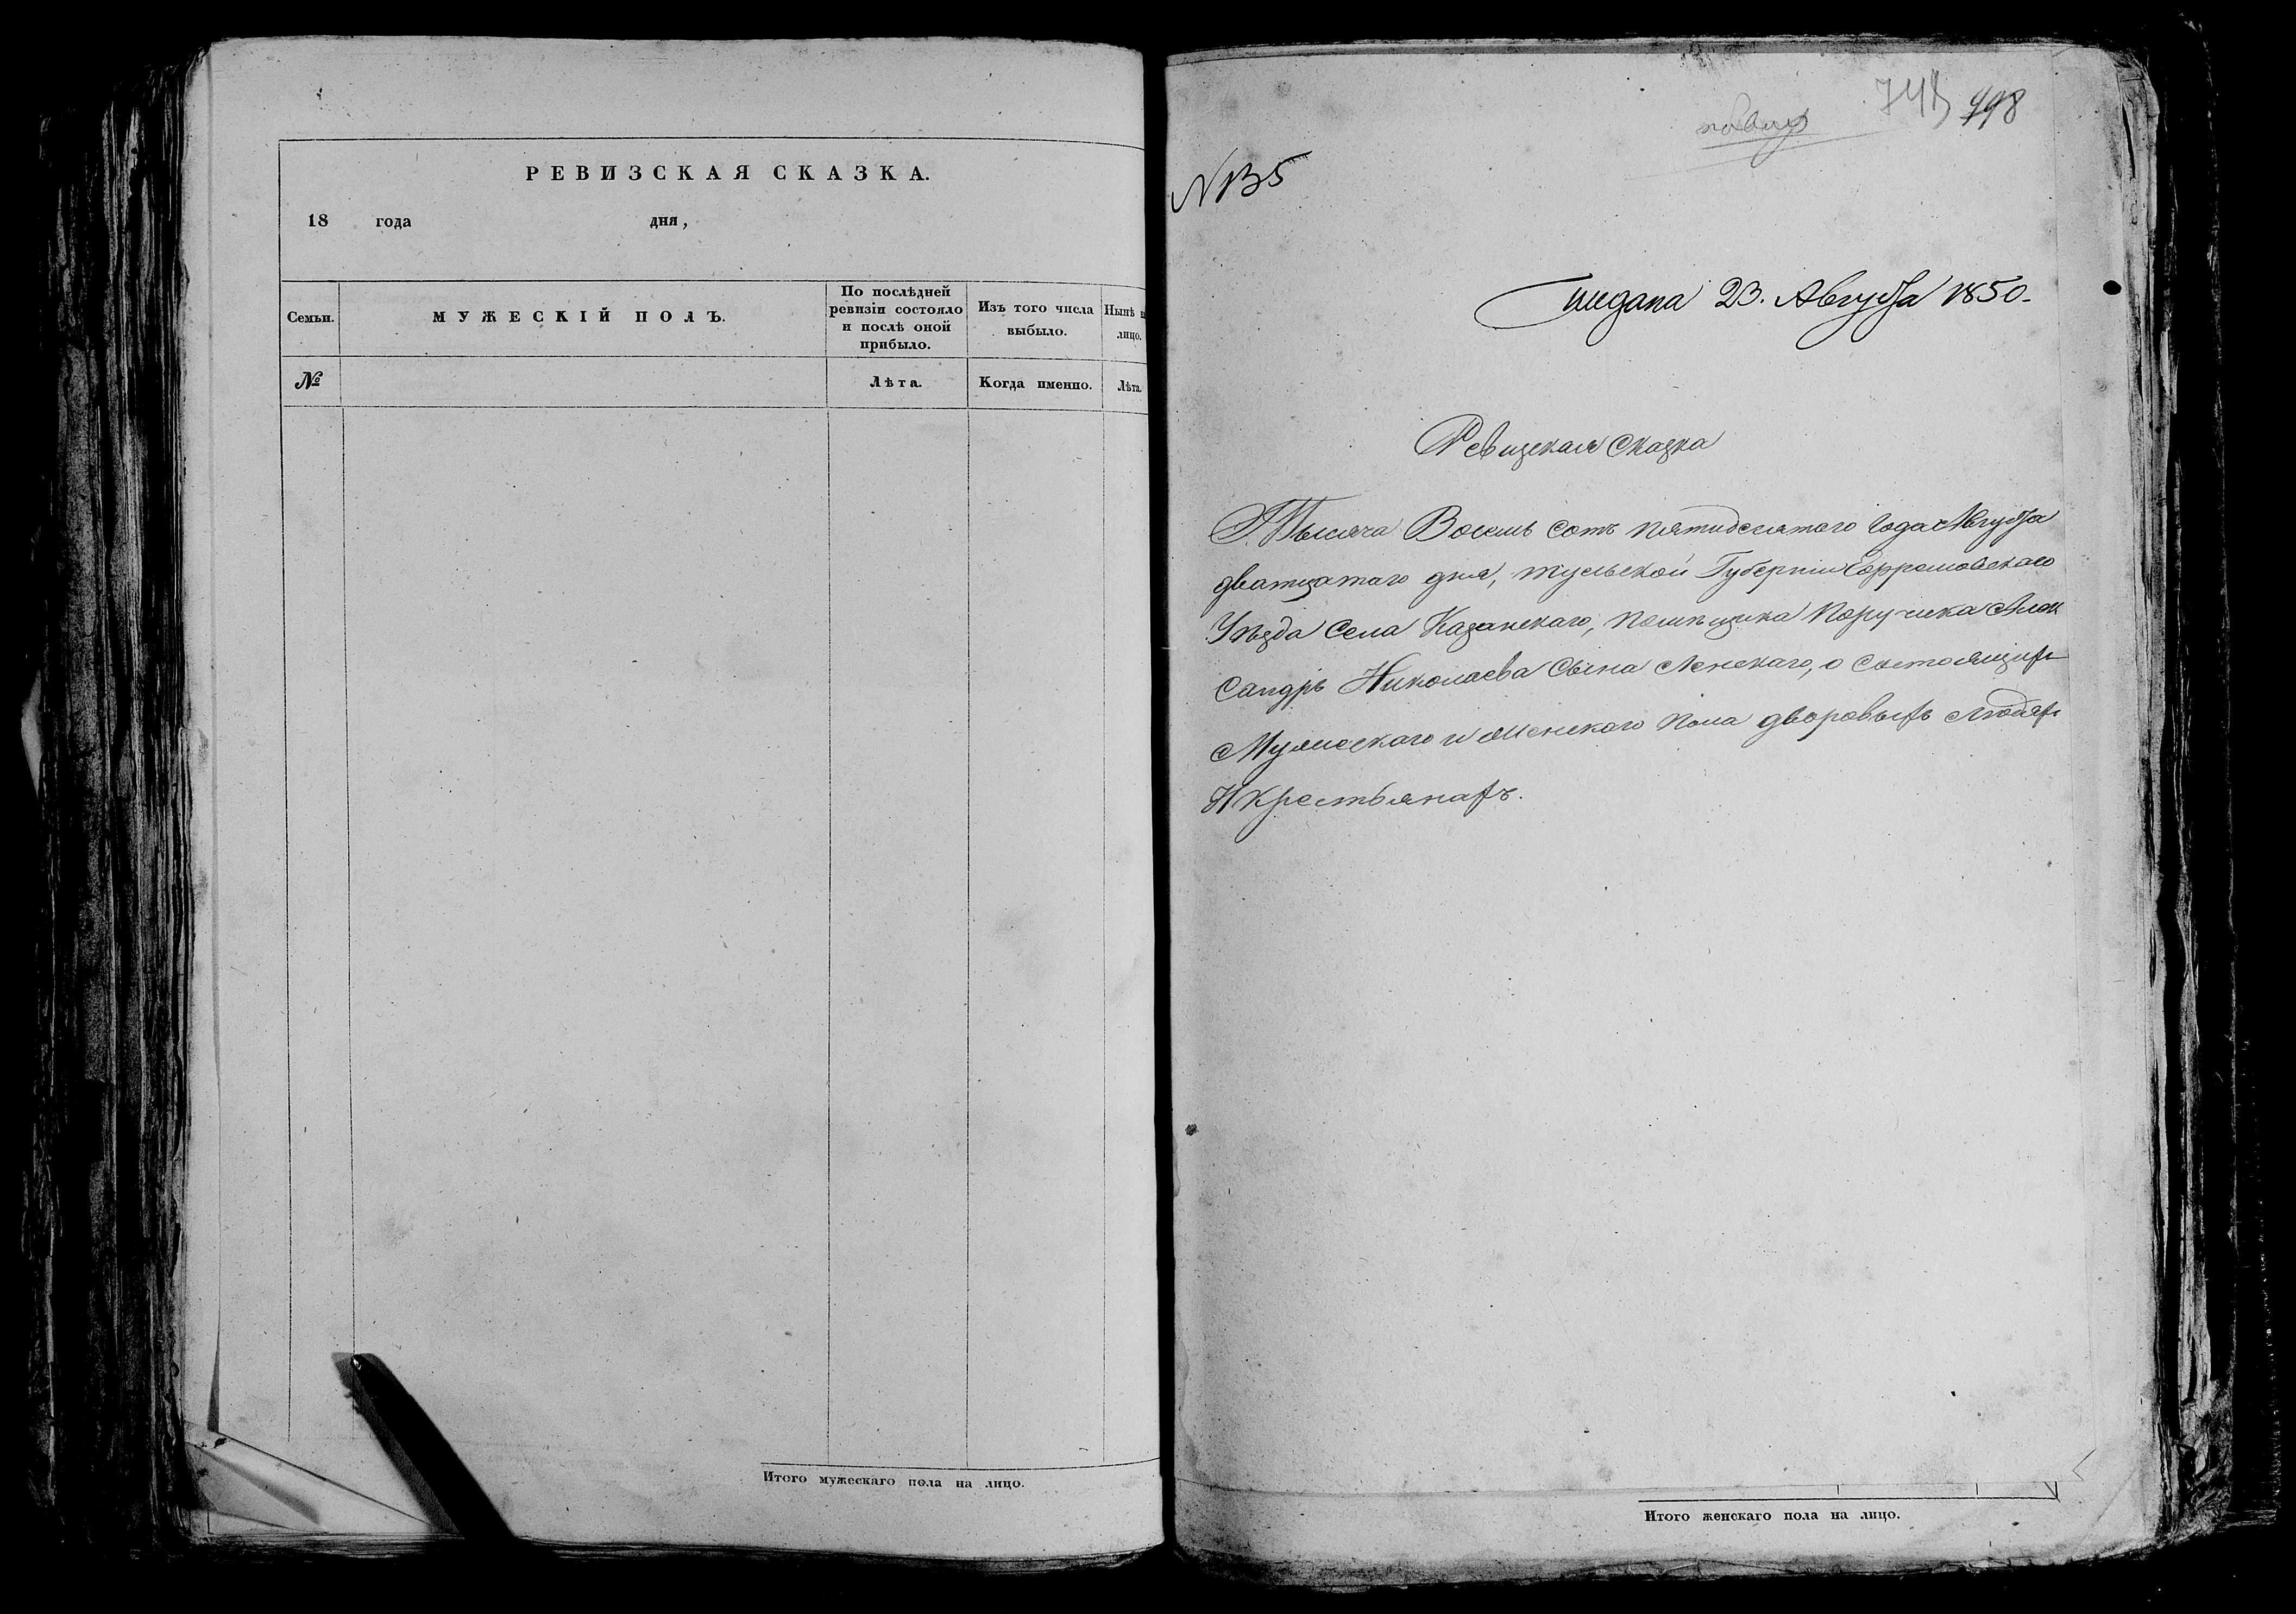 РЕВИЗСКАЯ СКАЗКА.
18 года дня,
Семьи.
МУЖЕСКІЙ ПОЛЪ.
По послѣдней
ревизіи состояло
и послѣ оной
прибыло.
Изъ того числа
выбыло.
Нынѣ н
лицо.
№
Лѣта.
Когда именно.
Лѣта.
Итого мужескаго пола на лицо.
498
№ 135
подана 23. Августа 1850.
Ревизская Сказка
Тысяча Восемь сотъ пятидесятого Года Августа
дватцатаго дня, тульской Губерніи Ефремовскаго
Уѣзда Села Казанскаго, помѣщика Поручика Алек
сандръ Николаева Сына Ленскаго, о состоящихъ
Мужескаго и женскаго пола дворовыхъ людяхъ
И крестьянахъ.
Итого женскаго пола на лицо.